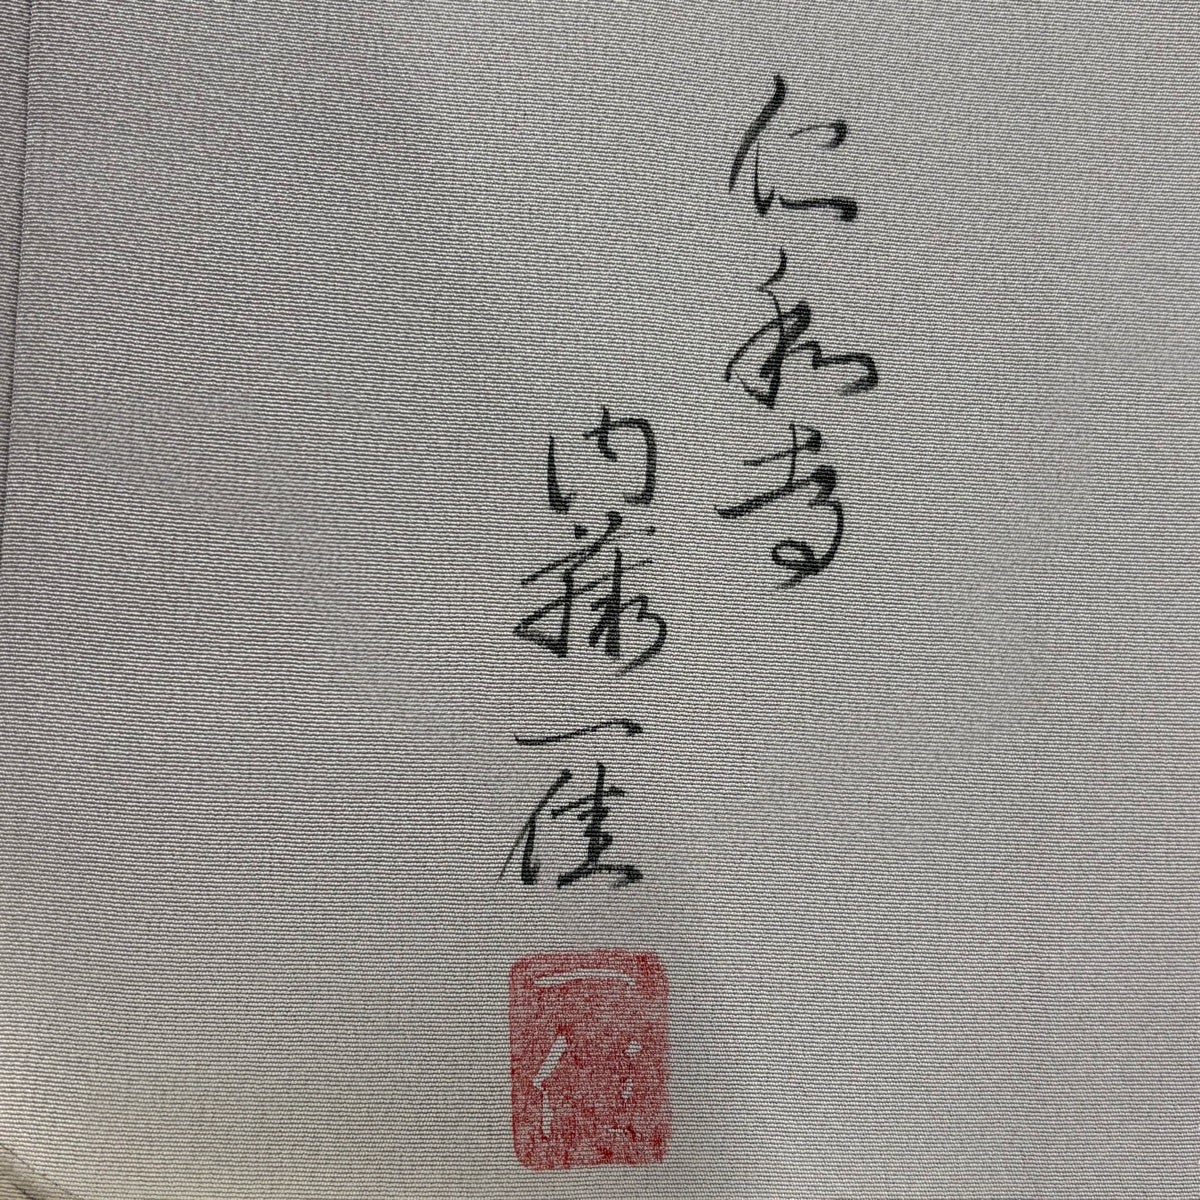 仁和寺
内藤一佳
一佳